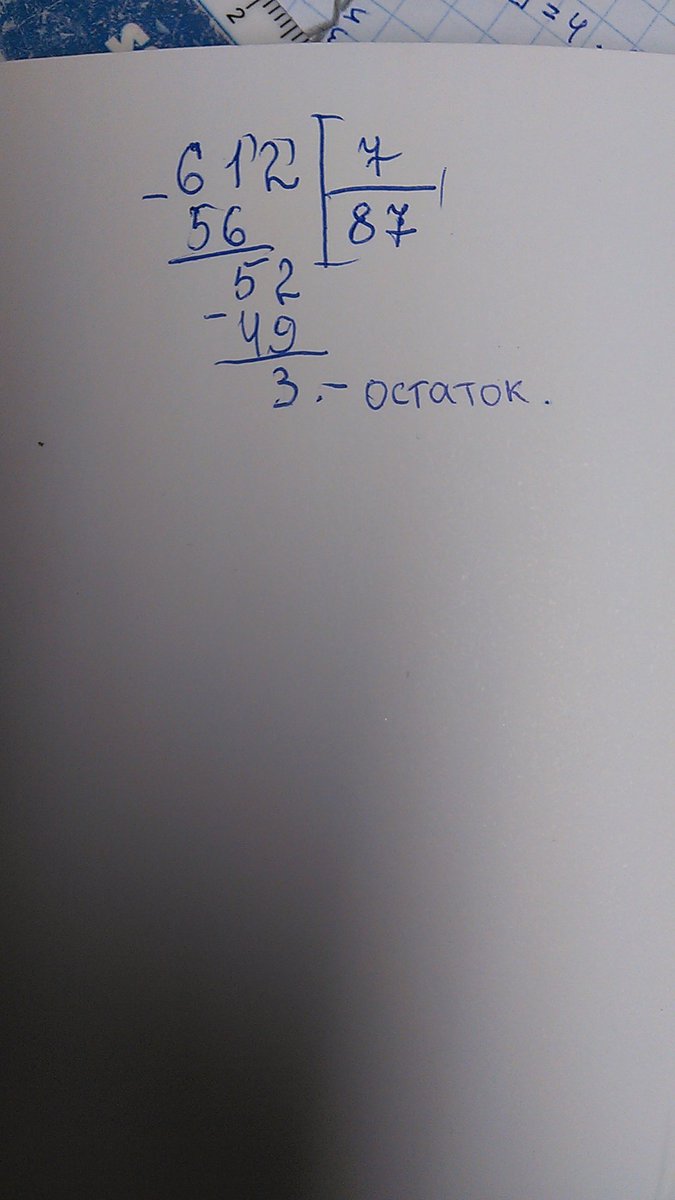 2
= 4
- 612 | 7
56 | 87
52
- 49
3. - остаток.